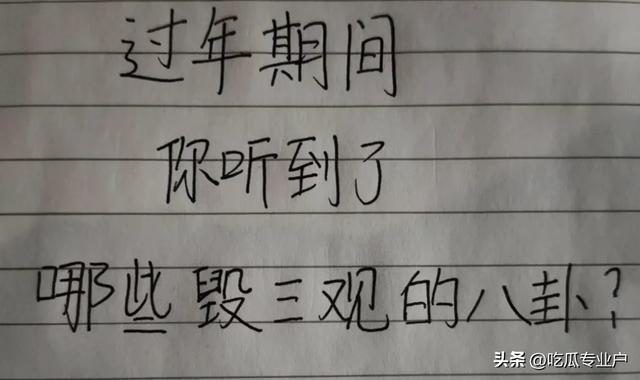 过年期间
你听到了
哪些毁三观的八卦?
头条 @吃瓜专业户